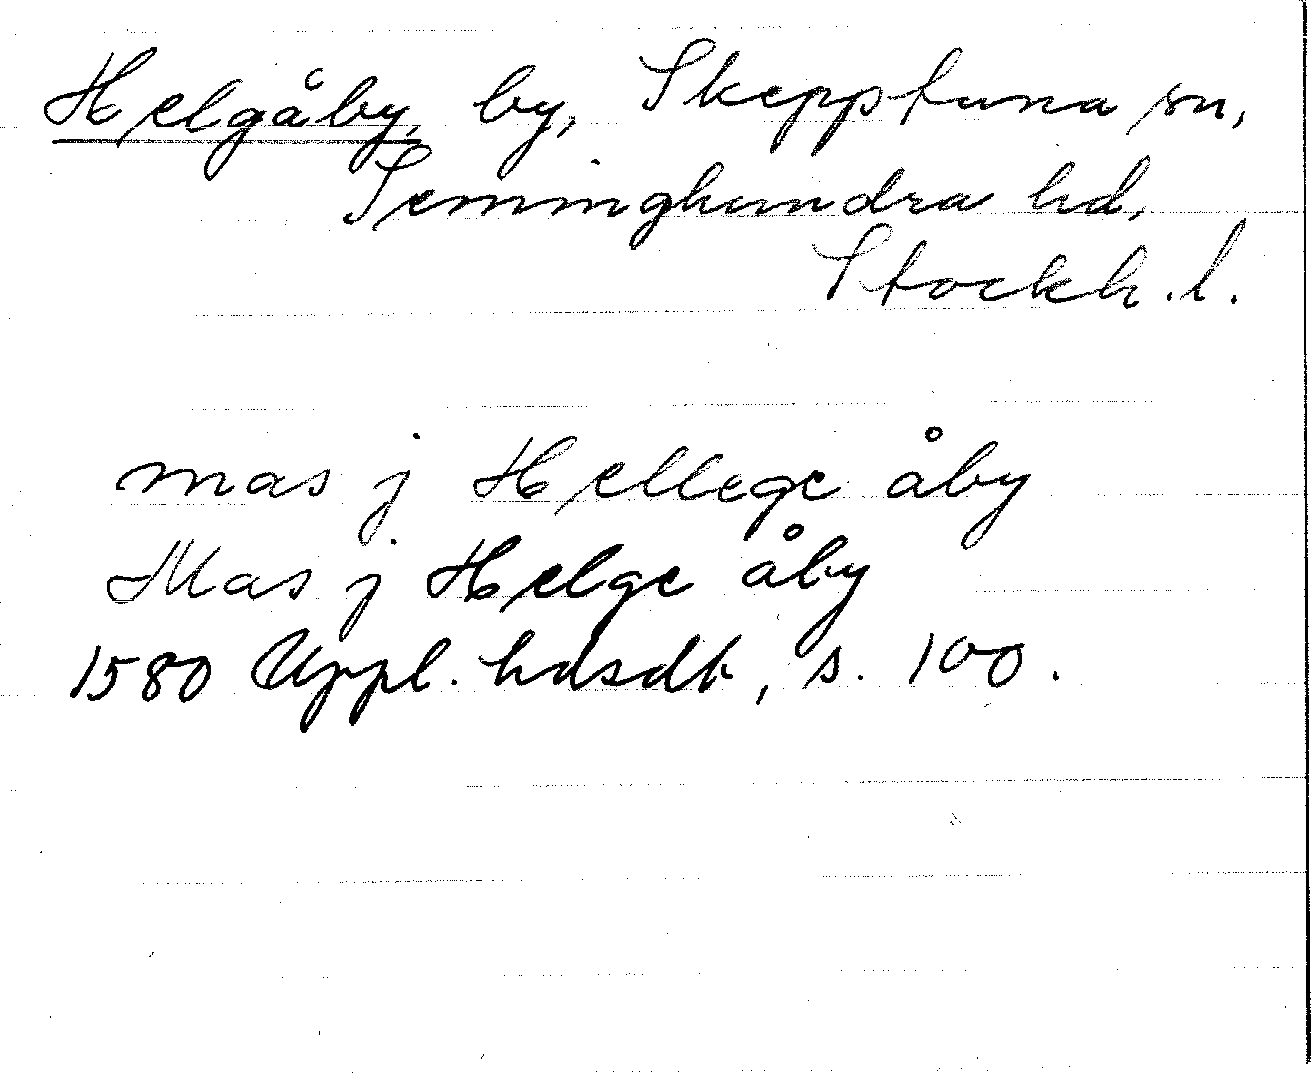 Helgåby, by, Skepptuna sn,
Seminghundra hd,
Stockh. l.
mas j Hellege åby
Mas j Helge åby
1580 Uppl. hdsdb, s. 100.